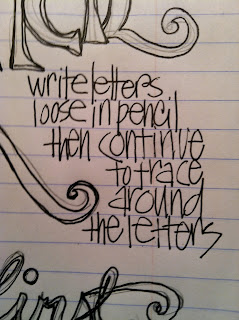 write letters
loose in pencil
then continue
to trace
around
the letters